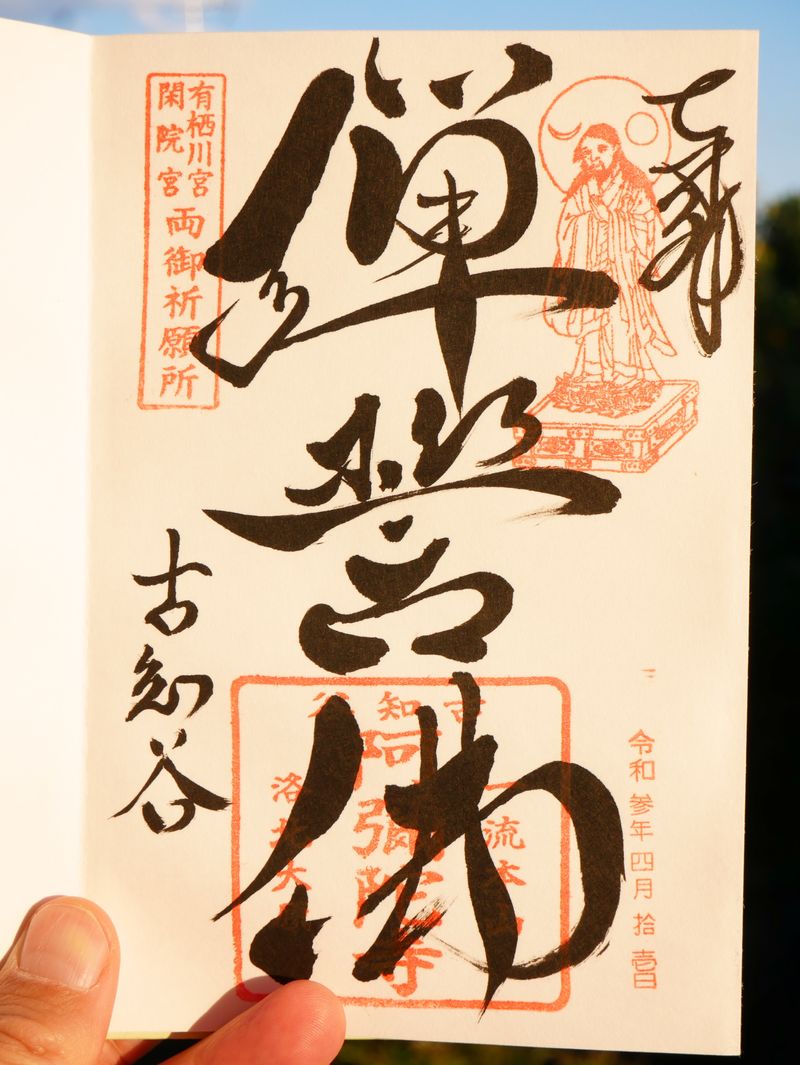 奉拝
彈誓佛
古知谷
有栖川宮
閑院宮
両御祈願所
古知谷
一流本山
阿彌陀寺
洛北大
令和参年四月拾壱日